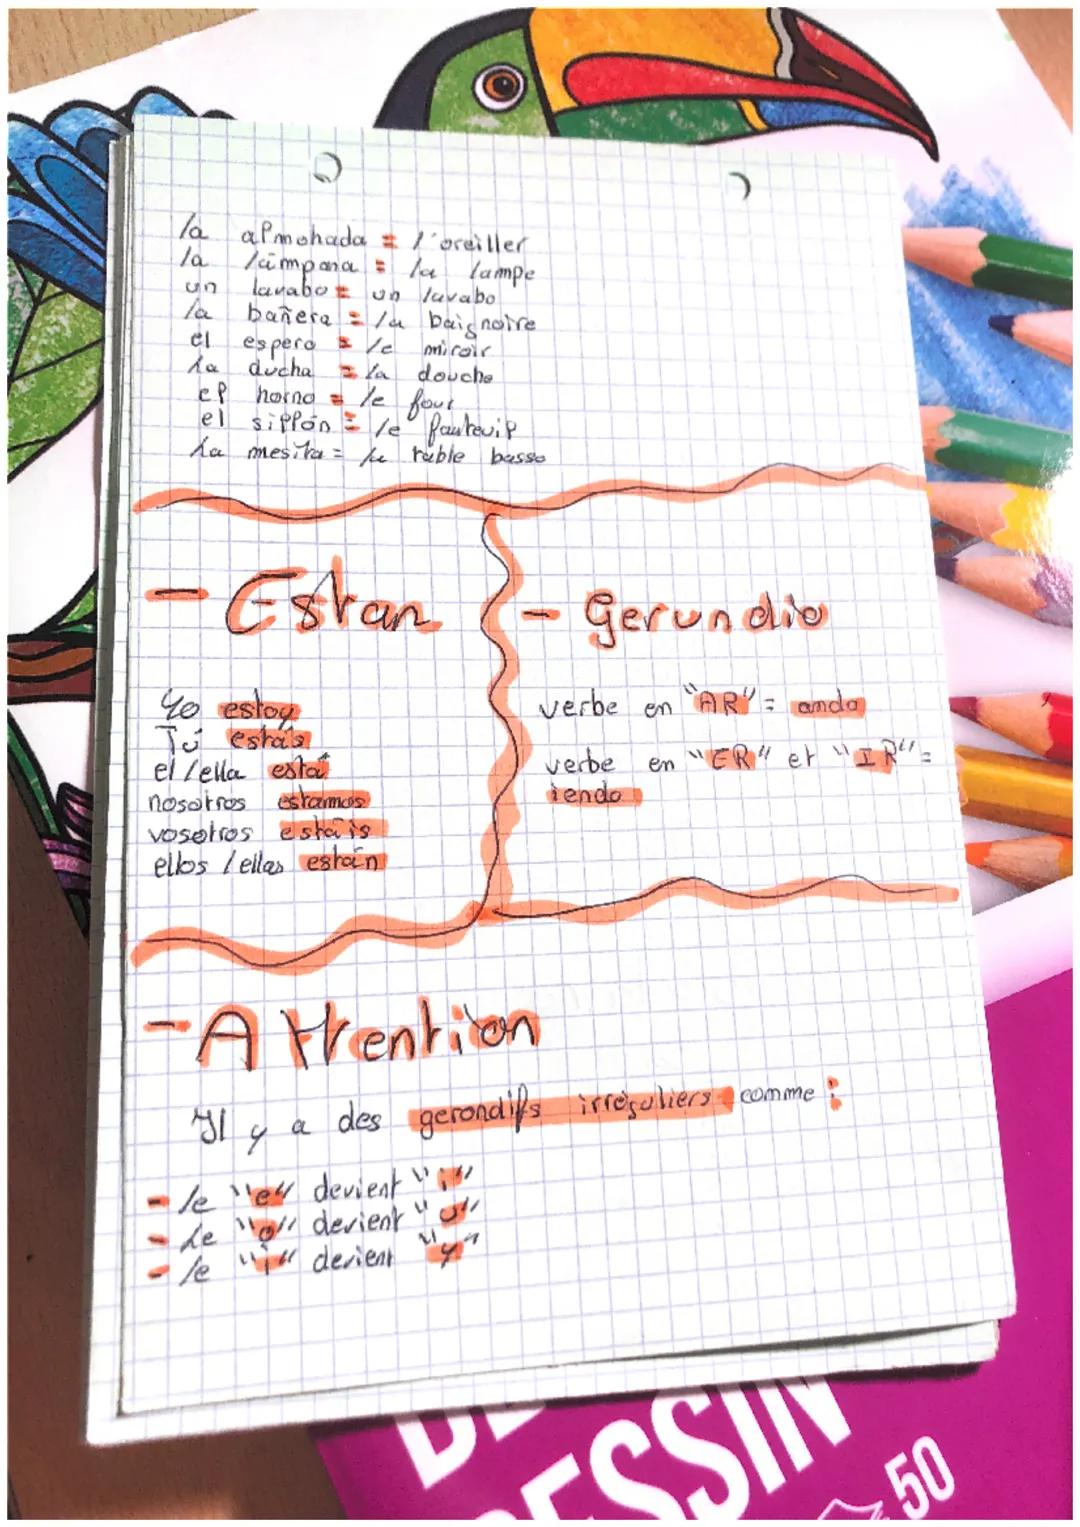 la almohada = l'oreiller
la lámpara = la lampe
un lavabo = un lavabo
la bañera = la baignoire
el espero = le miroir
La ducha = la douche
el horno = le four
el sillón = le fauteuil
La mesita = la table basse
- Estan
- Gerundio
Yo estoy
Tú estás
el/ella está
nosotros estamos
vosotros estáis
ellos/ellas están
verbe en "AR" = ando
verbe en "ER" et "IR" =
iendo
- Attention
Il y a des gerondifs irréguliers comme :
- le "e" devient "i"
- Le "o" devient "u"
- le "i" devient "y"
DESSIN
50